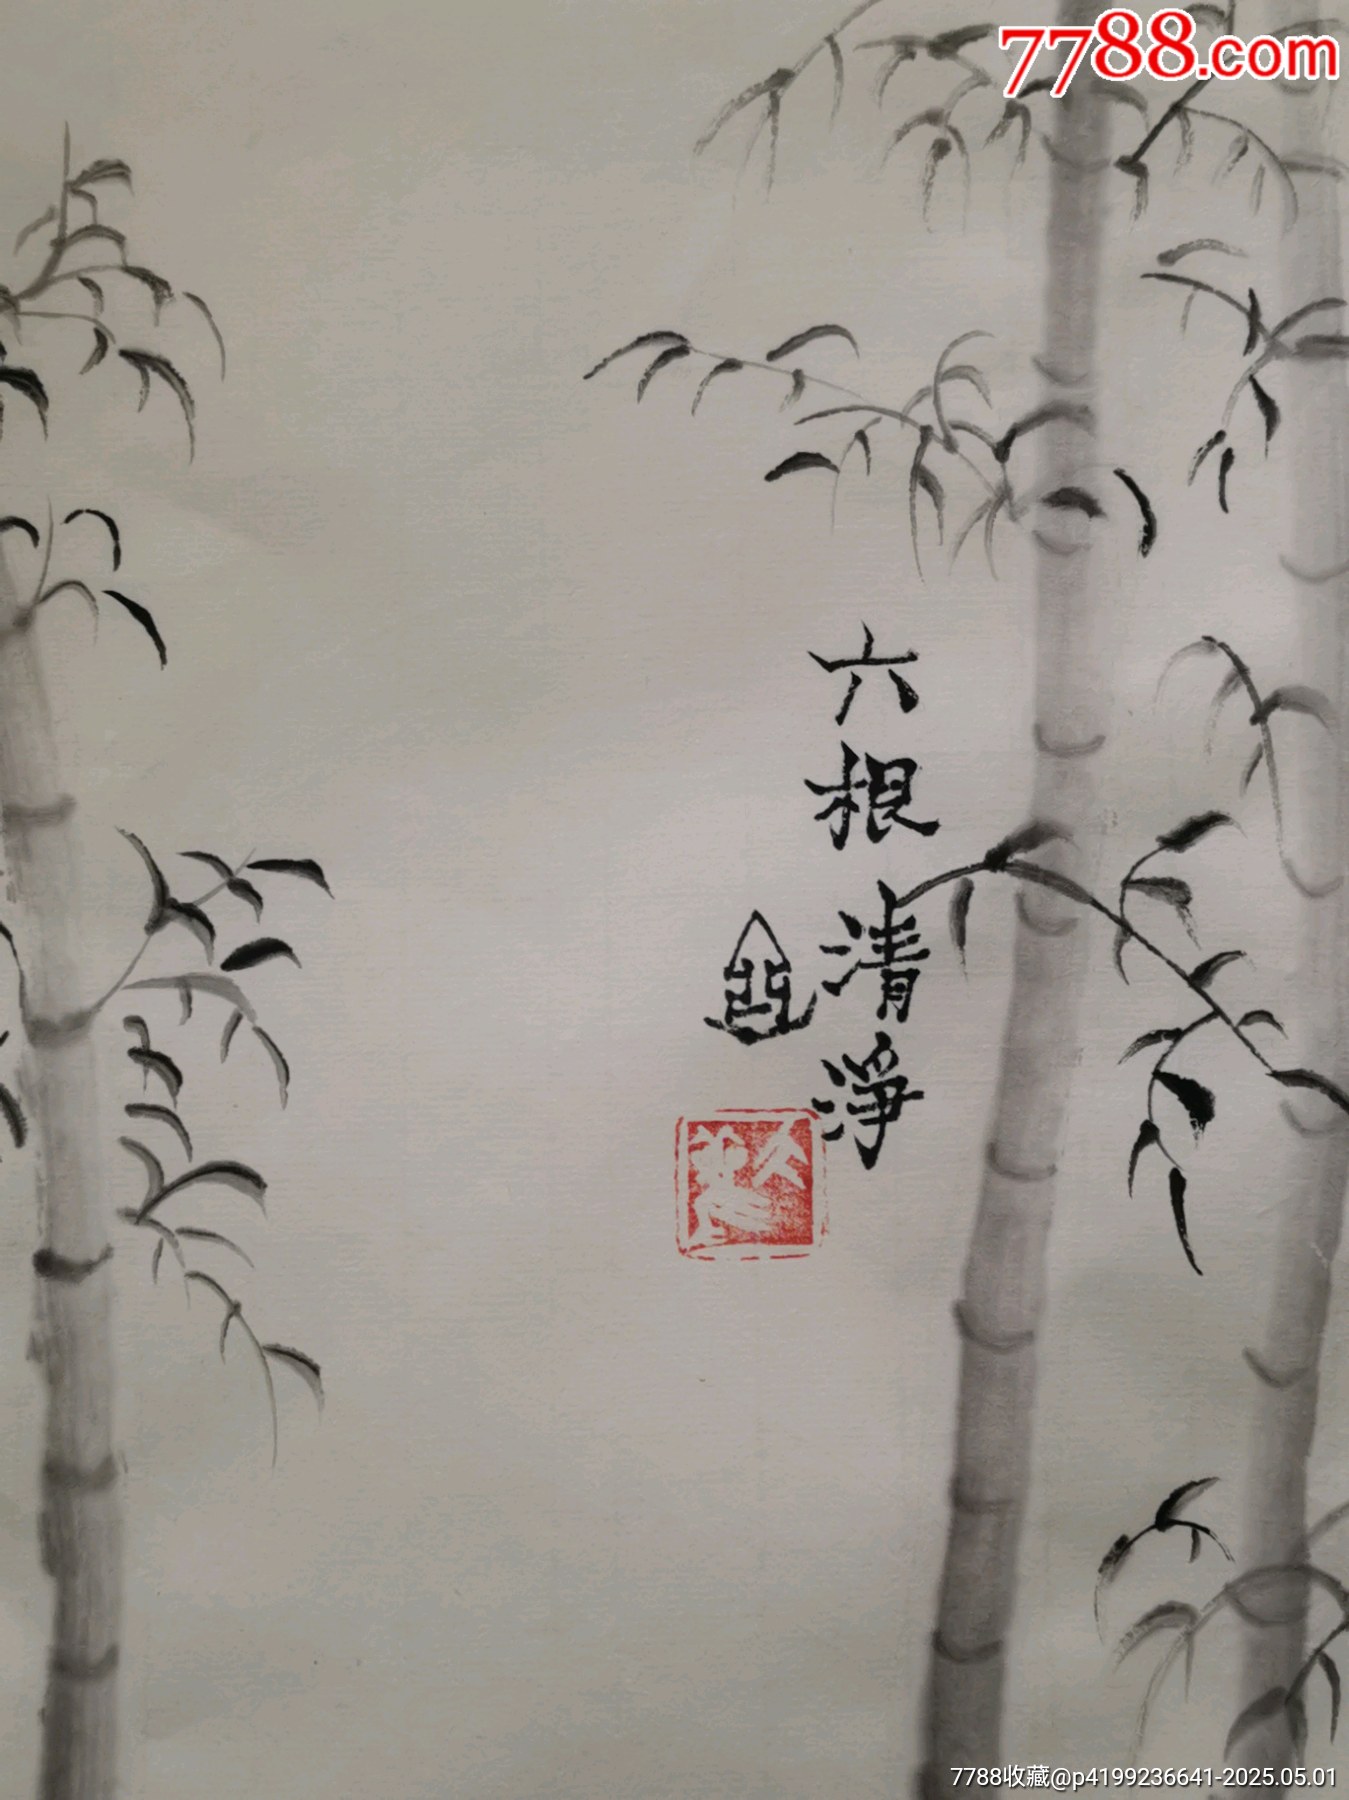 7788.com
六根清淨
7788收藏@p4199236641-2025.05.01